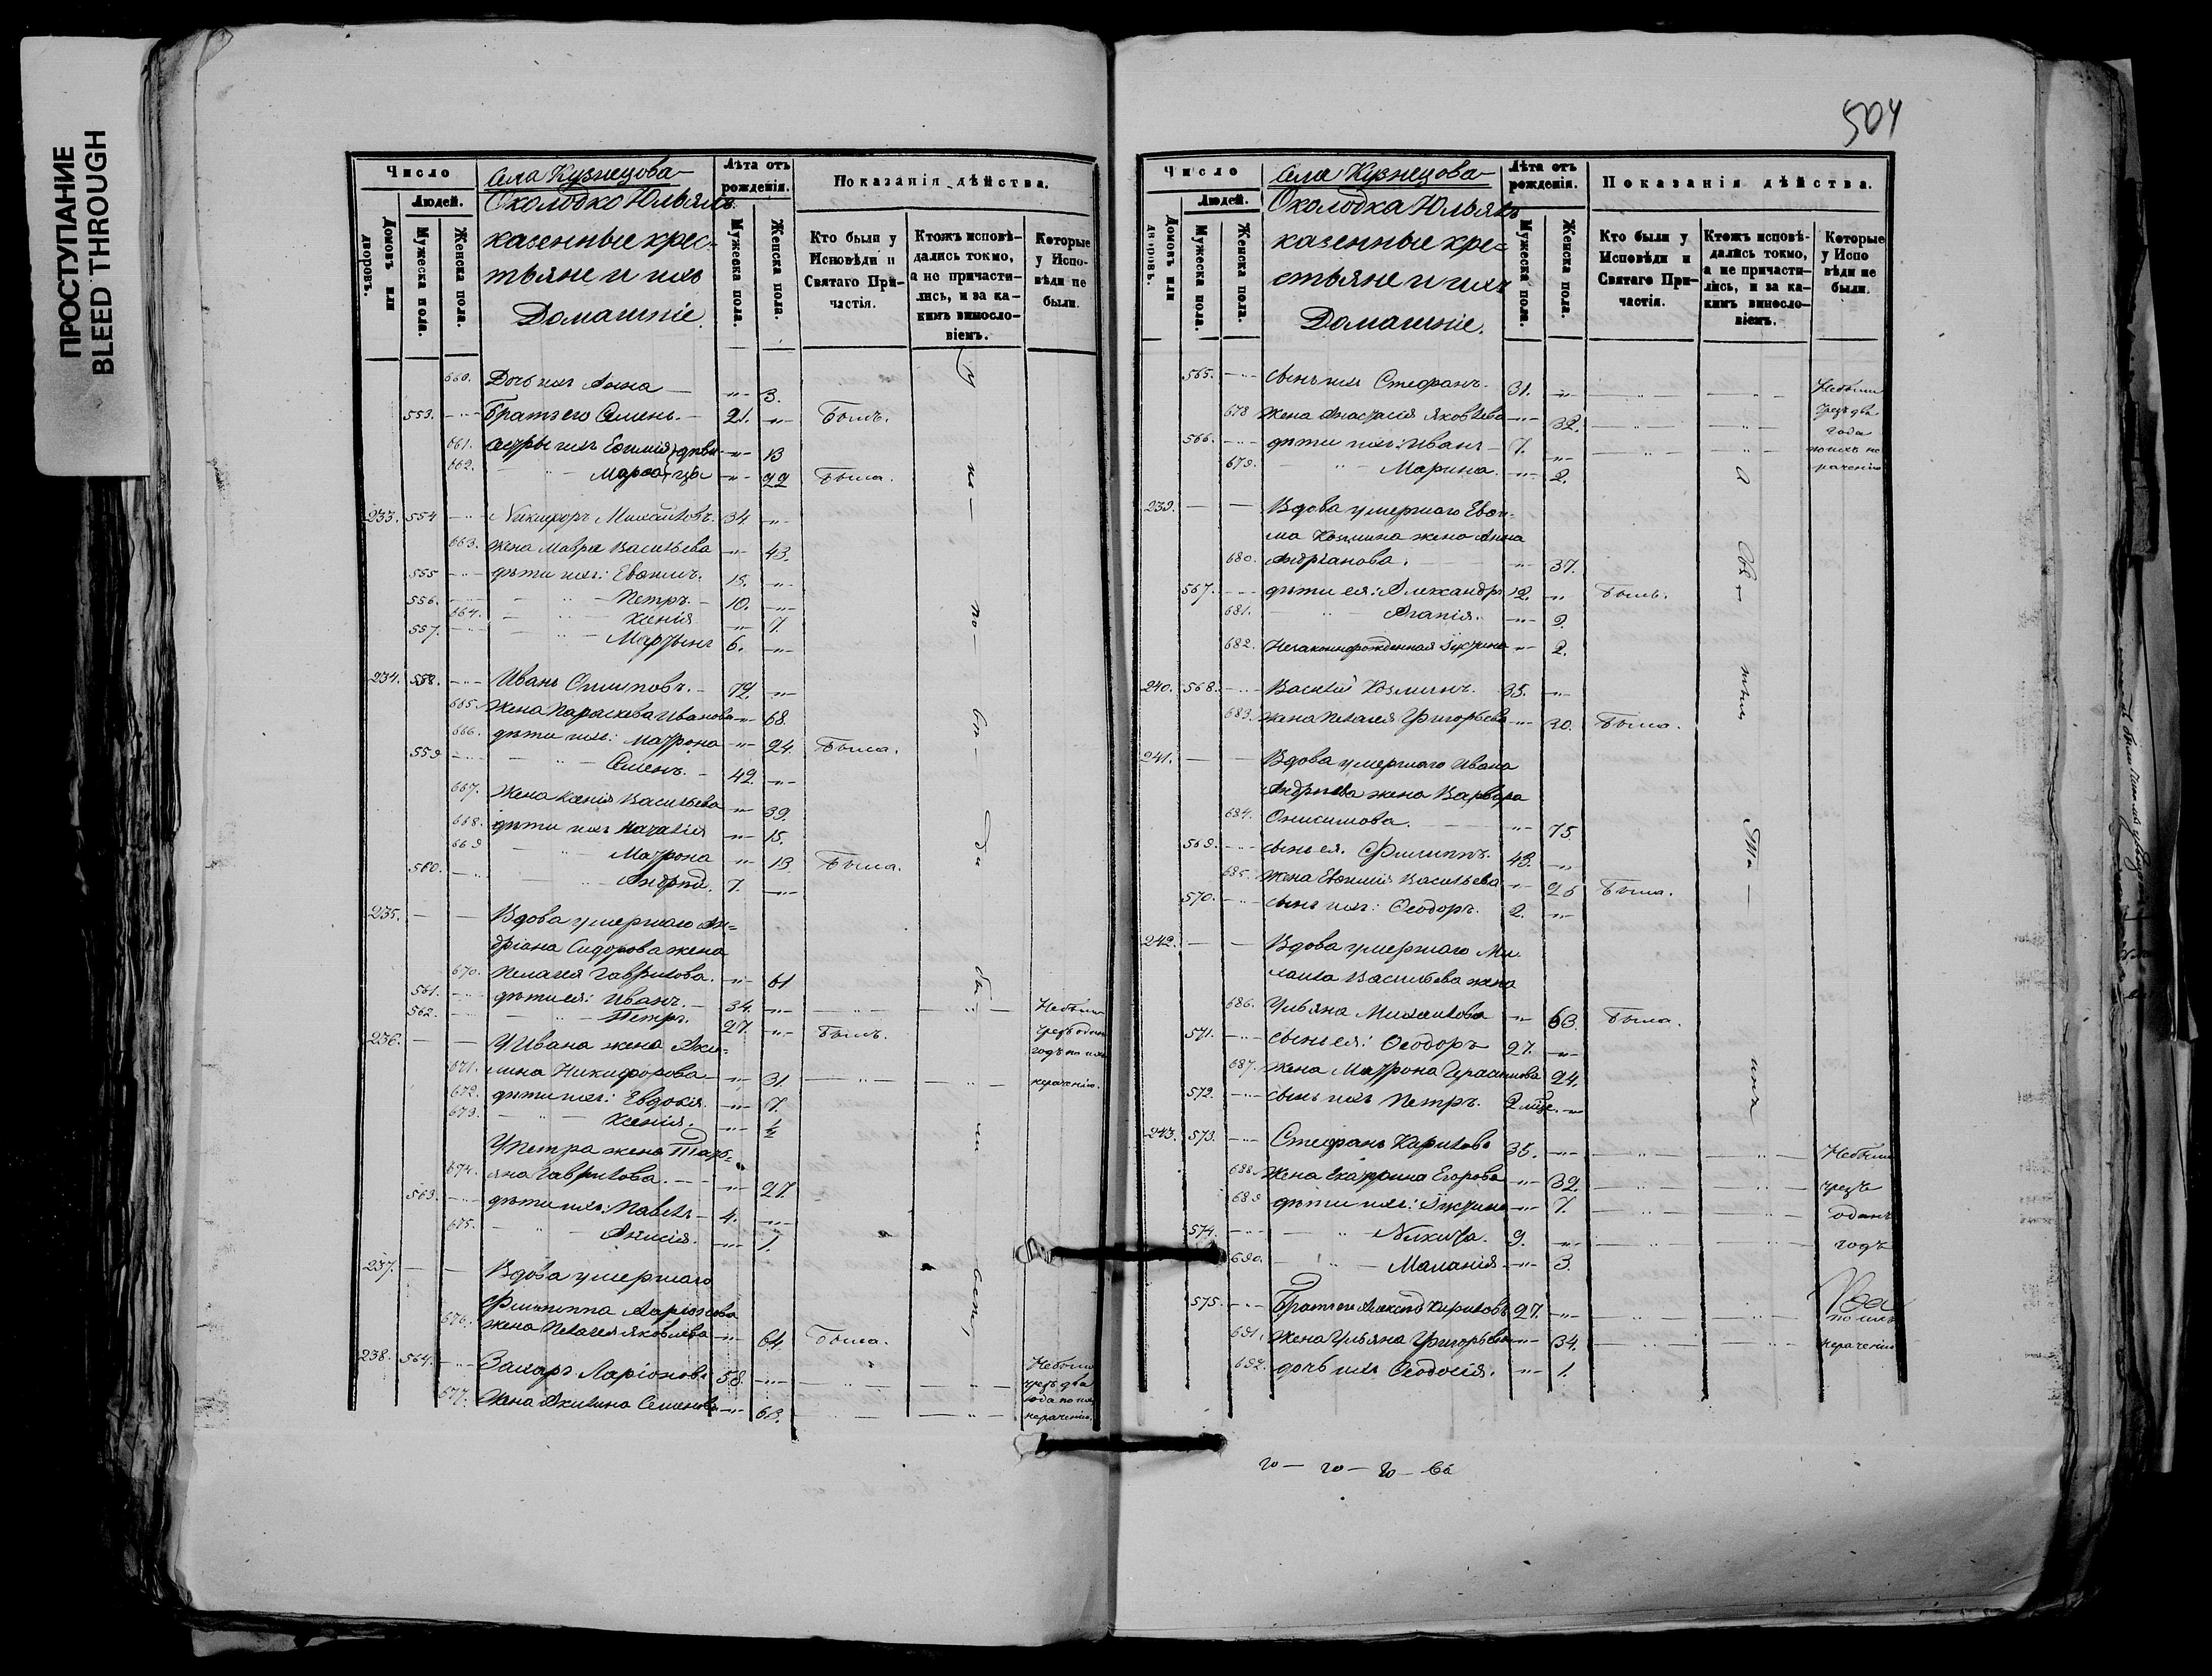 ПРОСТУПАНИЕ
BLEED THROUGH
Число
Людей.
Домовъ или дворовъ.
Мужеска пола.
Женска пола.
Села Кузнецова
Околодко Юльялъ
казенные крес-
тьяне и ихъ
Домашніе.
Лѣта отъ рожденія.
Мужеска пола.
Женска пола.
Показанія дѣйства.
Кто были у Исповѣди и Святаго Причастія.
Ктожъ исповѣдались токмо, а не причастились, и за какимъ винословіемъ.
Которые у Исповѣди не были.
660. Дочь ихъ Анна — 3.
553. Братъ его Семенъ. 21. Былъ.
661. Сестры ихъ Евѳимія } дѣви- 13
662. Марѳа } цы 22 Была.
233. 554 Никифоръ Михайловъ. 34
663. жена Мавра Васильева 43.
555 дѣти ихъ: Евѳимъ. 15.
556. Петръ. 10.
664. Ксенія 7.
557. Мартынъ 6.
234. 558. Иванъ Осиповъ. 72.
665. Жена Параскева Иванова 68
666. дѣти ихъ: Матрона 24. Была.
559 Семенъ. 42.
667. Жена Ксенія Васильева 39.
668. дѣти ихъ Наталія 15.
669 Матрона 13 Была.
560. Андрей. 7.
235. Вдова умершаго Ан-
дріана Сидорова жена
670. Пелагея Гаврилова. 61
561. дѣти ея: Иванъ. 34. Небыли
562. Петръ. 27. Былъ. чрезъ одинъ
236. У Ивана жена Аку- годъ по ихъ
671. лина Никифорова 31. нераченію.
672. дѣти ихъ: Евдокія. 7.
673. Ксенія. 1/2
У Петра жена Тать-
674. яна Гаврилова. 27.
563. дѣти ихъ: Павелъ 4.
675. Анисія. 1.
237. Вдова умершаго
Филиппа Ларіонова
676. жена Пелагея Яковлева 64 Была.
238. 564. Захаръ Ларіоновъ 58. Небыли
чрезъ два
года по ихъ
677. Жена Акилина Семенова 63. нераченію.
504
Число
Людей.
Домовъ или дворовъ.
Мужеска пола.
Женска пола.
Села Кузнецова
Околодка Юльялъ
казенные кре-
стьяне и ихъ
Домашніе.
Лѣта отъ рожденія.
Мужеска пола.
Женска пола.
Показанія дѣйства.
Кто были у Исповѣди и Святаго Причастія.
Ктожъ исповѣдались токмо, а не причастились, и за какимъ винословіемъ.
Которые у Исповѣди не были.
565. сынъ ихъ Стефанъ. 31. Небыли
678 Жена Анастасія Яковлева 32. чрезъ два
года
566. дѣти ихъ: Иванъ 7. по ихъ не
679. Марина. 2. раченію
239. Вдова умершаго Евѳи-
ма Козмина жена Анна
680. Андріанова. 37.
567. дѣти ея: Александръ 12. Былъ.
681. Агапія. 9.
682. Незаконнорожденная Іустина 2.
240. 568. Василій Козминъ. 35.
683. Жена Пелагея Григорьева 30. Была.
241. Вдова умершаго Ивана
Андреева жена Варвара
684. Онисимова. 75
569. сынъ ея. Филиппъ. 43.
685. Жена Евѳимія Васильева 26 Была.
570. сынъ ихъ: Ѳеодоръ. 2.
242. Вдова умершаго Ми-
хаила Васильева жена
686. Ульяна Михайлова 63. Была.
571. сынъ ея: Ѳеодоръ 27.
687. Жена Матрона Герасимова 24.
572. сынъ ихъ Петръ. 2 мѣс.
243. 573. Стефанъ Кириловъ 35. Небыли
688 Жена Екатерина Егорова 32. чрезъ
689 дѣти ихъ: Іустина 7. одинъ
574. Никита. 9. годъ
690. Маланія 3.
575. Братъ его Алексѣй Кириловъ 27. по ихъ
691. Жена Ульяна Григорьева 34. нераченію
692. дочь ихъ Ѳеодосія. 1.
го — го — го — ва